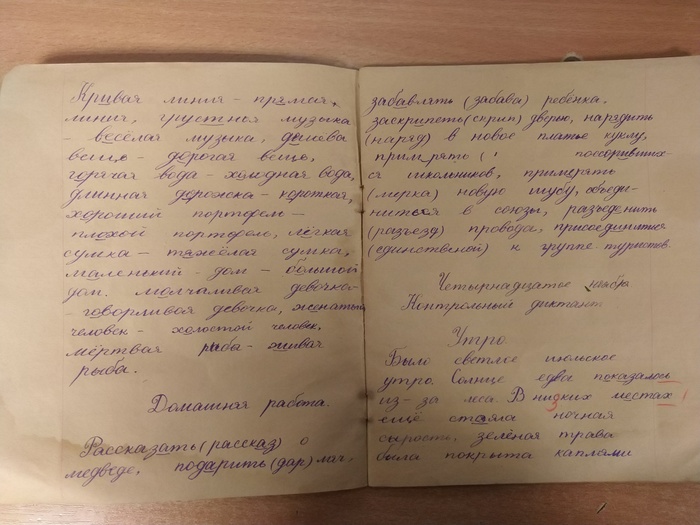 Кривая линия – прямая,
линия, грустная музыка
– весёлая музыка, дешева
вещь – дорогая вещь,
горячая вода – холодная вода,
длинная дорожка – короткая,
хороший портфель –
плохой портфель, лёгкая
сумка – тяжёлая сумка,
маленький дом – большой
дом. молчаливая девочка –
– говорливая девочка, женатый
человек – холостой человек,
мёртвая рыба – живая
рыба.
Домашняя работа.
Рассказать (рассказ) о
медведе, подарить (дар) мяч,
забавлять (забава) ребёнка,
заскрипеть (скрип) дверью, нарядить
(наряд) в новое платье куклу,
примирять ( поссоривших-
ся школьников, примерять
(мерка) новую шубу, объеди-
ниться в союзы, разъеденить
(разъезд) провода, присоединится
(единственной) к группе туристов.
Четырнадцатое ноября
Контрольный диктант
Утро.
Было светлое июльское
утро. Солнце едва показалось
из-за леса. В низких местах
ещё стояла ночная
сырость, зелёная трава
была покрыта каплями